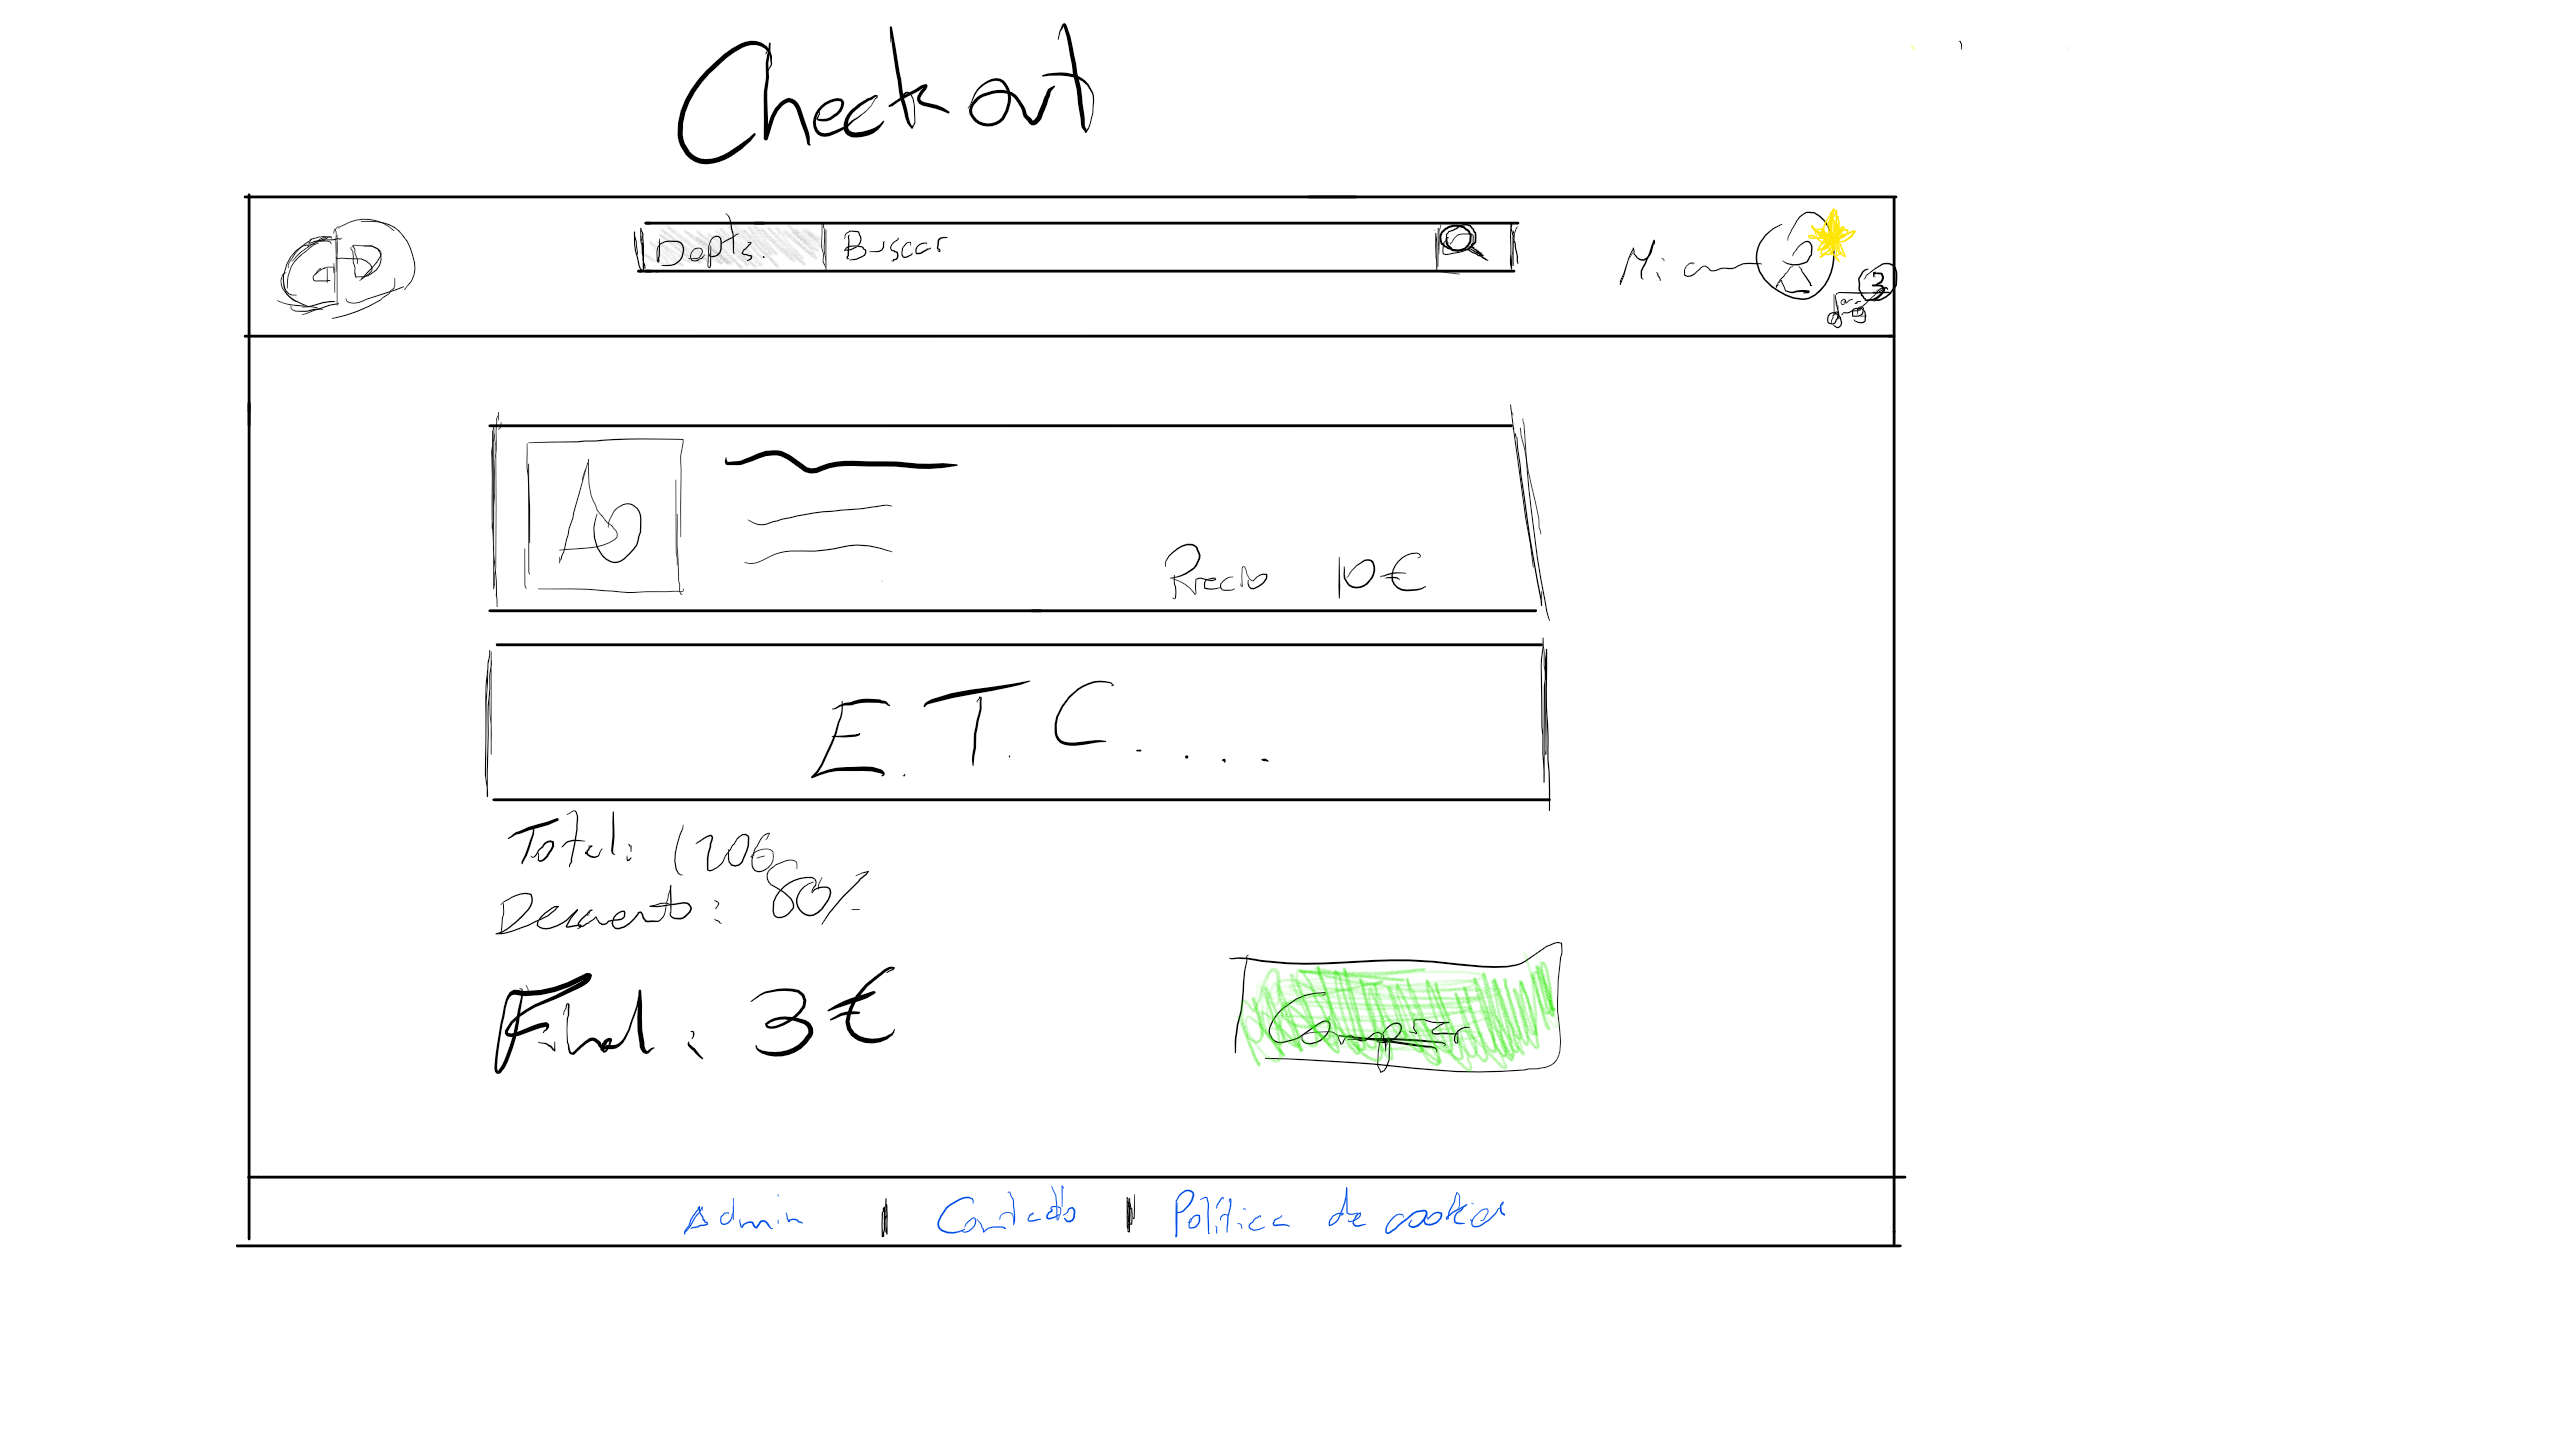 Checkout
Depts. Buscar
Mi
3
Precio 10€
E.T.C....
Total: 120€
Descuento: 80%
Final: 3€
Comprar
Admin | Contacto | Política de cookies